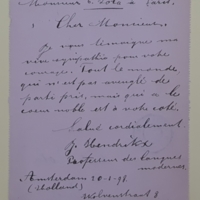 Monsieur E Zola à Paris.
Cher Monsieur,
Je vous témoigne ma
vive sympathie pour votre
courage. Tout le monde
qui n'est pas aveuglé de
parti pris, mais qui a le
cœur noble est à votre côté.
Salut cordialement.
J. Hendrikx
Professeur de langues
modernes
Amsterdam 20-1-98
(Holland)